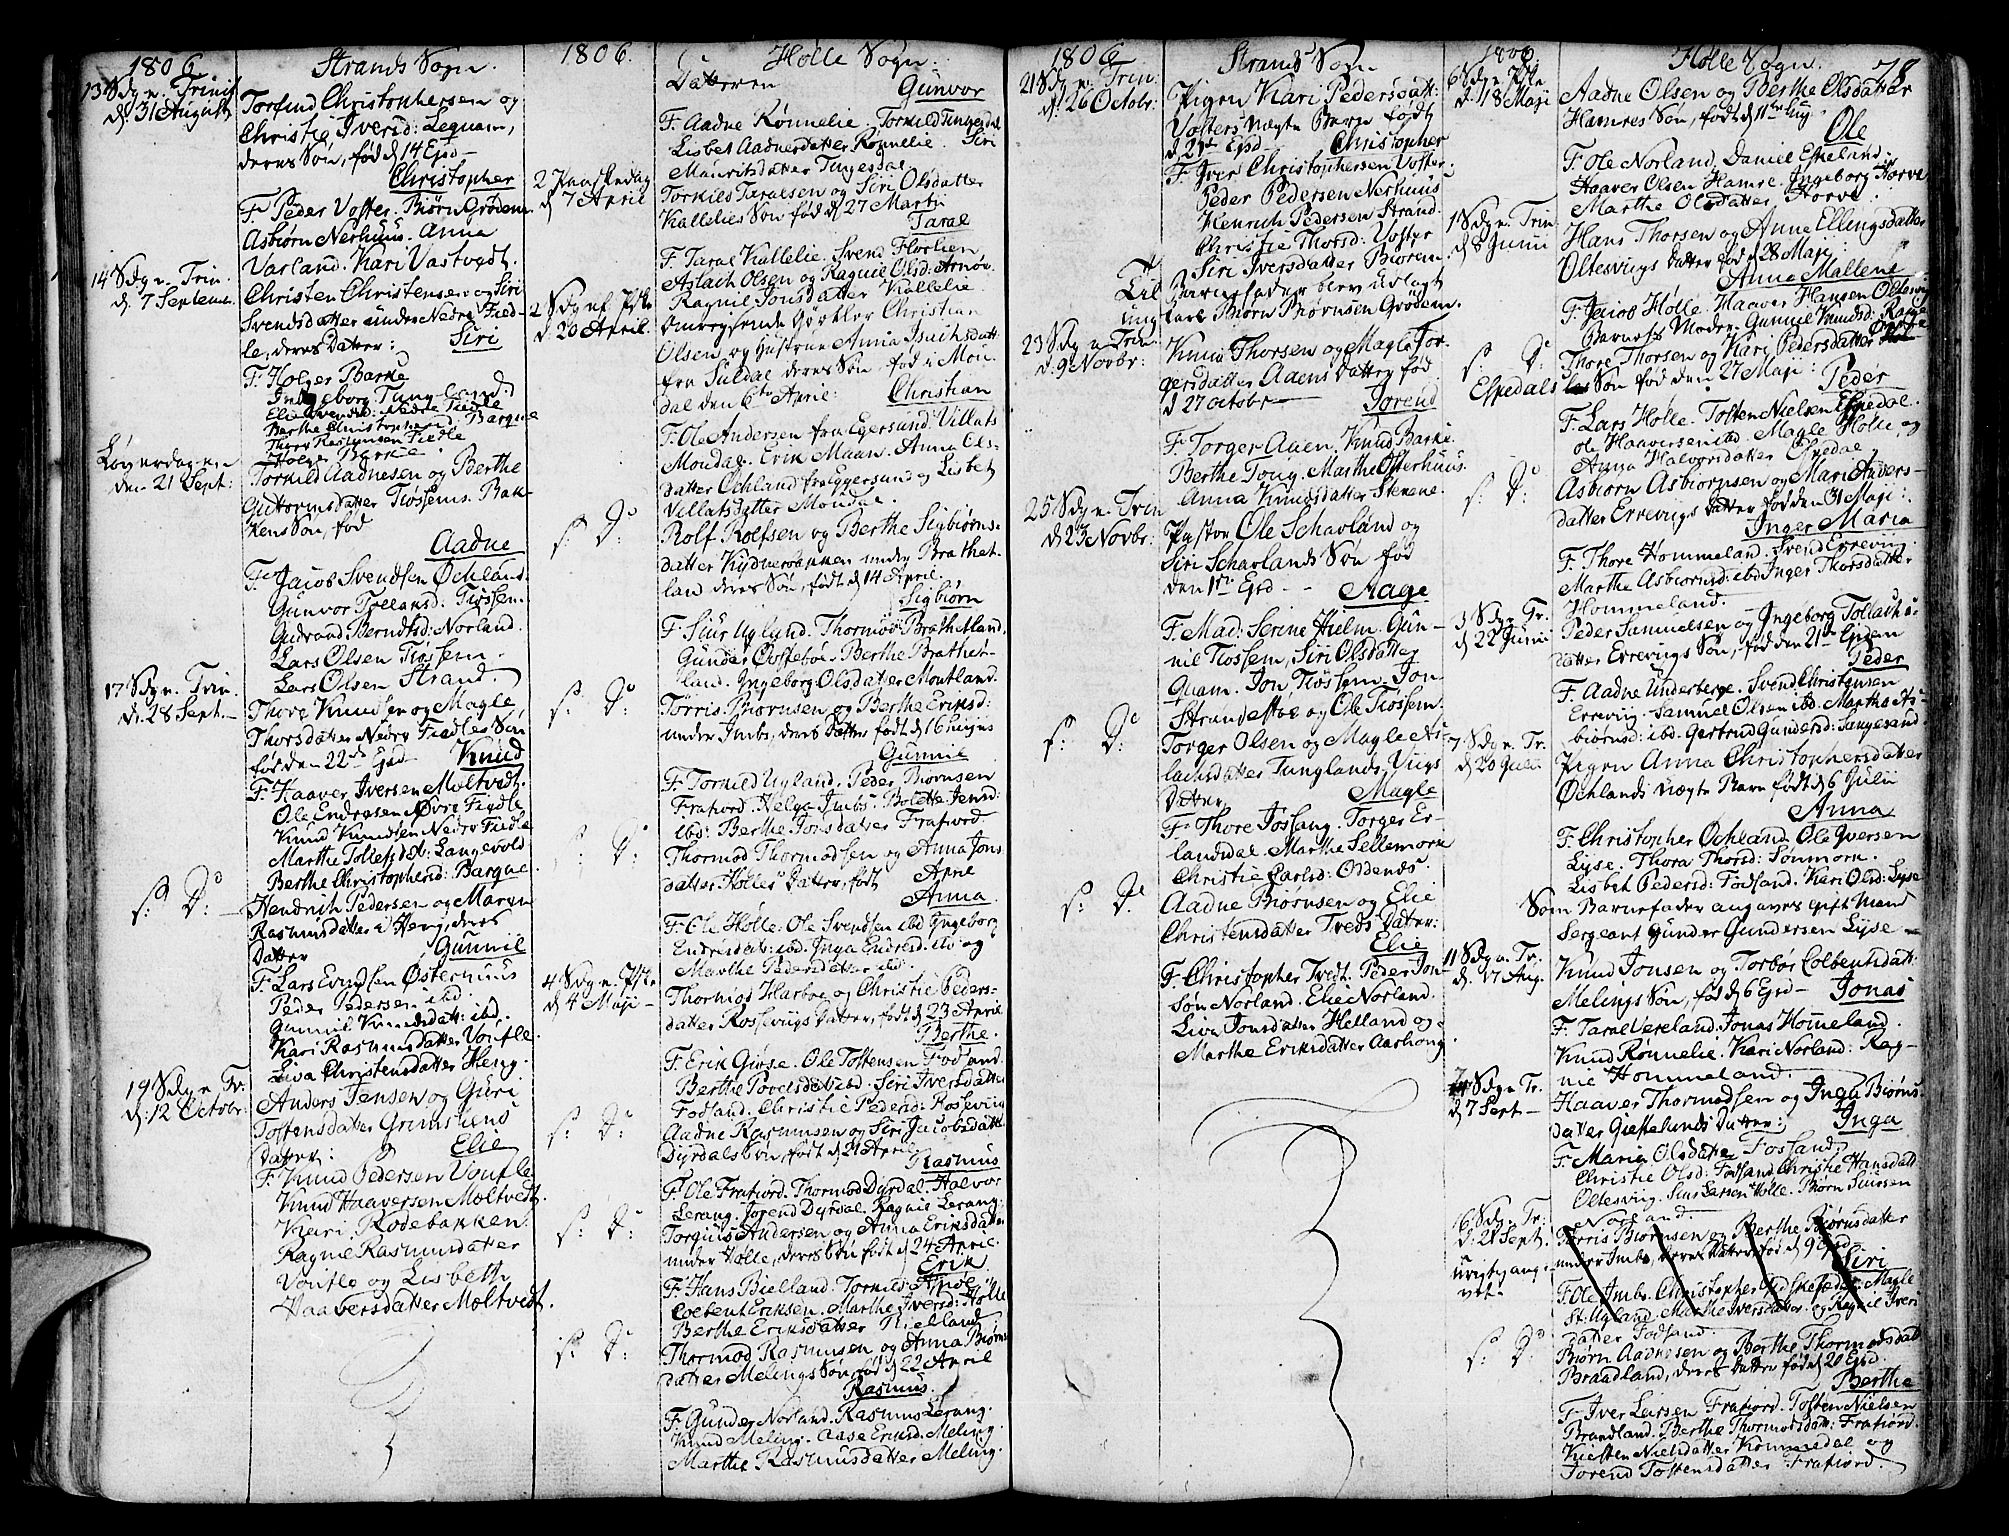 1806
Strands Sogn.
13 Sdg n. Trinit
d. 31 August
Torfind Christophersen og
Christie Iversd: Leqvam,
deres Søn, fød d 14 Ejsd -
Christopher
F. Peder Voster. Biørn Grødem
Asbiørn Nerhuus. Anna
Varland. Kari Vastvedt.
14 Sdg n. Trin.
d. 7 Septemr.
Christen Christensen og Siri
Svendsdatter under Nedre Fied-
le, deres Datter: Siri
F. Holger Barke
Ingeborg Tungland
Elie Svendsd: Nedre Fiedle
Berthe Christophersd: Barqve
Thore Rasmusen Fiedle
Holger Barke
Løverdagen
den 21 Sept:
Torkild Aadnesen og Berthe
Guttormsdatter Tiøssems Bak-
kens Søn, fød
Aadne
F. Jacob Svendsen Ochlans
Gunvor Tollansd: Tiøssem
Gudrand Berndtsd: Norland.
Lars Olsen Tiøssem
Lars Olsen Strand.
17 Sdg n. Trin.
d. 28 Sept. -
Thore Knudsen og Magle
Thorsdatter Nedre Fiedles Søn
fød den 22de Ejsd Knud
F. Haaver Iversen Moltvedt.
Ole Endresen Øvre Fiedle
Knud Knudsen Nedre Fiedle
Marthe Tollefsdat: Langevold
Berthe Christophersd: Barqve.
s: D: -
Hendrich Pedersen og Maren
Rasmusdatter i Heng, deres
Datter Gunnil
F. Lars Evindsen Østerhuus
Peder Pedersen ibd
Gunnil Knudsdatt: ibd.
Kari Rasmusdatter Voufle
Liva Christensdatter Heng.
19 Sdg n. Tr.
d. 12 Octobr:
Anders Jensen og Guri
Tostensdatter Grimslids
Datter: Elie
F. Knud Pedersen Voufle
Knud Haaversen Moltvedt.
Kari Rodebakken.
Ragnil Rasmusdatter
Voufle og Lisbeth
Haaversdatter Moltvedt.
1806.
Holle Sogn.
Datteren Gunvor
F. Aadne Rønnelie. Torkild Tingesdal
Lisbet Aadnesdatter Rønnelie. Siri
Mauritsdatter Tingesdal
2 Paaskedag
d 7 April
Torkild Taralsen og Siri Olsdatter
Kallelies Søn fød d 27 Marti
Taral
F. Taral Kallelie. Svend Florlien
Aslach Olsen og Ragnile Olsd: Arnøe.
Ragnil Jonsdatter Kallelie.
2 Sdg eft. Pske
d. 20 April.
Omreysende Giørtler Christian
Olsen og Hustrue Anna Isachsdatt
fra Suldal deres Søn fød i Mon-
dal den 6te April: Christian
F. Ole Andersen fra Egersund. Villats
Mondal. Erik Maan. Anna Ols-
datter Ochland fra Eggersund og Lisbet
Villatsdatter Mondal.
s: D:
Rolf Rolfsen og Berthe Sigbiørns-
datter Kydnesbakken under Brathet-
land deres Søn, født d 14 April.
Sigbiørn
F. Siur Uglund. Thormod Brathetland.
Gunder Eossebøe. Berthe Brathet-
land. Ingeborg Olsdatter Moutland.
s: D:
Tørris Biørnsen og Berthe Eriksd:
under Imbs, deres Datter født d 16 hujus
Gunnil
F. Torkild Ugland. Peder Biørnsen
Frafiord. Helga Imbs. Bolette Jensd:
ibd: Berthe Jonsdatter Frafiord.
: D:
Thormod Thormodsen og Anna Jons
datter Holles Datter, født Apne
Anna
F. Ole Holle. Ole Svendsen ibd Ingeborg
Endresdatt: ibd. Inga Endresd: ibd og
Marthe Pedersdatter ibd.
4 Sdg n. Pske
d 4 Maji -
Thormod Harboe og Christie Peders-
datter Rosseviigs Datter, født d. 23 April
Berthe.
F. Erik Giøse. Ole Tostensen Fodland.
Berthe Povelsdat ibd. Siri Iversdatter
Fodland. Christie Pedersd: Rosseviig
s: D:
Aadne Rasmusen og Siri Jacobsdatt
Dyrdals Søn, født d. 21 April
Rasmus
F. Ole Frafiord. Thormod Dyrdal. Halvor
Lerang. Jorend Dyrdal. Ragnile Lerang.
s: D:
Torgius Andersen og Anna Eriksdatter
under Holle, deres Søn født d 24 April.
Erik
F. Hans Bielland. Torkild Apnøe
Colbent Eriksen. Marthe Iversd: Holle
Berthe Eriksdatter Bielland
s: D:
Thormod Rasmusen og Anna Biørns
datter Melings Søn, fød d. 22 April
Rasmus.
F. Gunder Norland. Rasmus Lerang.
Knud Meling. Aase Eriksd: Meling.
Marthe Rasmusdatter Meling.
1806
Strands Sogn.
21 Sdg n. Trin.
d. 26 Octobr:
Pigen Kari Pedersdatt:
Vosters uægte Barn født
d 21de Ejsd Christopher
F. Iver Christophersen Voster.
Peder Pedersen Nerhuus
Henrich Pedersen Strand.
Christie Thorsd: Voster
Siri Iversdatter Biørem
Til Barnefader blev udlagt
ung Karl Biørn Biørnsen Grødem.
23 Sdg n Trin
d. 9 Novbr:
Knud Thorsen og Magle Tor-
gersdatter Aaens Datter fød
d 27 octobr - Jorend
F. Torger Aaen. Knud Barke.
Berthe Tong. Marthe Østerhuus.
Anna Knudsdatter Stenene.
25 Sdg n. Trin
d. 23 Novbr:
Pastor Ole Schavland og
Siri Schavlands Søn fød
den 1ste Ejsd - Aage
F. Mad: Serine Hielm. Gun-
nil Tiøssem, Siri Olsdatter
Quam. Jon Tiøssem. Jon
Strandestøe og Ole Tiøssem.
s: D:
Torger Olsen og Magle As-
lachsdatter Tunglands Viigs
Datter Magle
F. Thore Jossang. Torger Er-
landsdal. Marthe Sellemork
Christie Carlsd: Oddends.
s: D:
Aadne Biørnsen og Elie
Christensdatter Treds Datter:
Elie
F. Christopher Tvedt. Peder Jon-
søn Norland. Elie Norland.
Liva Jonsdatter Helland og
Marthe Eriksdatter Aarhong.
1806
Holle Sogn.
78
6 Sdg n. Pske
d. 18 Maji
Aadne Olsen og Berthe Olsdatter
Hamres Søn, født d 11te huj:
Ole
F. Ole Norland. Daniel Eskelund.
Haaver Olsen Hamre. Ingeborg Horve
Marthe Olsdatter Horve.
1 Sdg n. Trin.
d. 8 Junii
Hans Thorsen og Anne Ellingsdatter
Oltesvigs Datter fød d 28 Maji
Anna Mallene
F. Jacob Holle. Haaver Hansen Oltesvig
Barnets Moder. Gunnil Knudsd: Rage
s: D:
Thore Thorsen og Kari Pedersdatter
Espedals Søn fød den 27 Maji: Peder
F. Lars Holle. Tosten Nielsen Espedal.
Ole Haaversen ibd. Magle Holle og
Anna Halvorsdatter Espedal
s: D:
Asbiørn Asbiørnsen og Mari Anders-
datter Errevigs Datter fød den 31 Maji:
Inger Maria
F. Thore Hommeland. Svend Erreviig.
Marthe Asbiørnsd: ibd Inger Thorsdatter
Hommeland.
3 Sdg n. Tr.
d 22 Junii
Peder Samuelsen og Ingeborg Tollachs-
datter Errevigs Søn, fød den 21de Ejusdem
Peder
F. Aadne Underberge. Svend Christensen
Erreviig. Samuel Olsen ibd. Martha As-
biørnsd: ibd. Gertrud Gundersd: Sangesand
7 Sdg n. Tr.
d 20 Julii
Pigen Anna Christophersdatter
Ochlands uægte Barn født d 6 Julii
Anna
F. Christopher Ochland. Ole Iversen
Lyse. Thora Thorsd: Sønmork.
Lisbet Pedersd: Fodland. Kari Olsd: Lyse
Som Barnefader angaves gift Mand
Sergeant Gunder Gundersen Lyse -
11 Sdg n. Tr.
d. 17 Aug.
Knud Jonsen og Torbor Colbentsdatt:
Melings Søn, fød d 6 Ejsd - Jonas
F. Taral Vereland. Jonas Hommeland.
Knud Rønnelie. Kari Norland: Rag-
nil Hommeland.
14 Sdg n. Tr.
d 7 Sept -
Haaver Thormodsen og Inga Biørns
datter Giekelunds Datter: Inga
F. Maria Olsdatter Fosland.
Christie Olsd: Fodland Christie Hansdatt
Oltesvig. Siur Larsen Holle. Biørn Siursen
Norland.
16 Sdg n. Tr.
d. 21 Sept.
urigtig an-
vet.
Tørris Biørnsen og Berthe Biørnsdatter
under Imbs deres Datter, fød d 9 Ejsd -
Siri
datter Fodland.
s: D:
Biørn Aadnesen og Berthe Thormodsdatt
Braadland, deres Datter fød d 20 Ejsd.
Berthe
F. Iver Larsen Frafiord. Tosten Nielsen
Brandland. Berthe Thormodsdatt: Frafiord.
Kirsten Nielsdatter Kommedal og
Jorend Tostensdatter Frafiord.